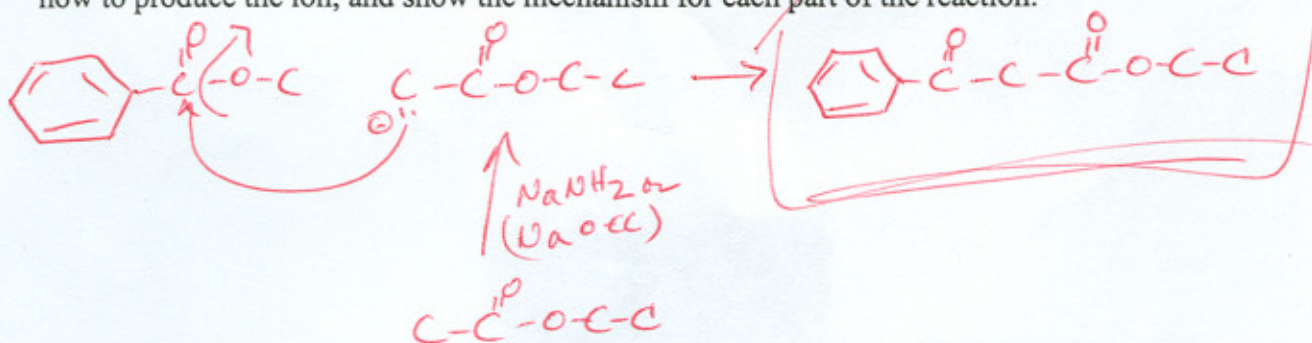 how to produce the ion, and show the mechanism for each part of the reaction.
O O O O
C-O-C C-C-O-C-C → C-C-C-O-C-C
⊖
NaNH2 or
(NaOCC)
O
C-C-O-C-C